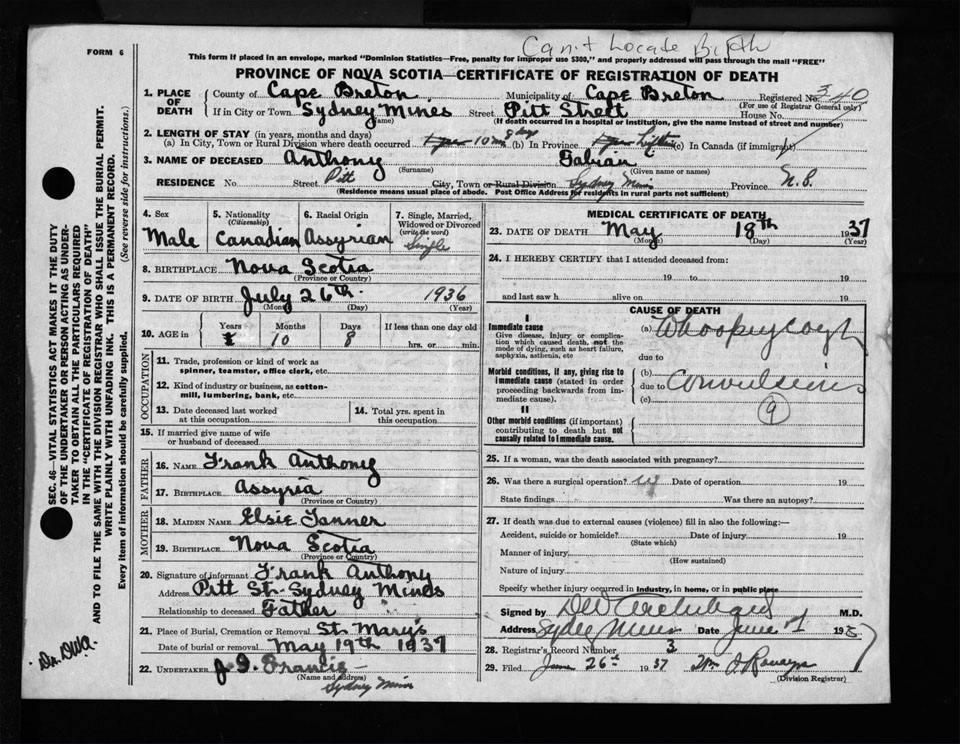 Can't Locate Birth
FORM 6
This form if placed in an envelope, marked "Dominion Statistics—Free, penalty for improper use $300," and properly addressed will pass through the mail "FREE"
PROVINCE OF NOVA SCOTIA—CERTIFICATE OF REGISTRATION OF DEATH
1. PLACE OF DEATH
County of Cape Breton Municipality of Cape Breton Registered No. 340
(For use of Registrar General only)
If in City or Town Sydney Mines Street Pitt Street House No.
(Name) (If death occurred in a hospital or institution, give the name instead of street and number)
2. LENGTH OF STAY (in years, months and days)
(a) In City, Town or Rural Division where death occurred 10 8 days (b) In Province (c) In Canada (if immigrant)
3. NAME OF DECEASED Anthony Gabian
(Surname) (Given name or names)
RESIDENCE No. Street Pitt City, Town or Rural Division Sydney Mines Province N.S.
(Residence means usual place of abode. Post Office Address for residents in rural parts not sufficient)
4. Sex Male
5. Nationality (Citizenship) Canadian
6. Racial Origin Assyrian
7. Single, Married, Widowed or Divorced (write the word) Single
8. BIRTHPLACE Nova Scotia
(Province or Country)
9. DATE OF BIRTH July 26th 1936
(Month) (Day) (Year)
10. AGE in Years Months Days If less than one day old
10 8 hrs. or min.
OCCUPATION
11. Trade, profession or kind of work as spinner, teamster, office clerk, etc.
12. Kind of industry or business, as cotton-mill, lumbering, bank, etc.
13. Date deceased last worked at this occupation
14. Total yrs. spent in this occupation
15. If married give name of wife or husband of deceased
FATHER
16. NAME Frank Anthony
17. BIRTHPLACE Assyria
(Province or Country)
MOTHER
18. MAIDEN NAME Elsie Tanner
19. BIRTHPLACE Nova Scotia
(Province or Country)
20. Signature of informant Frank Anthony
Address Pitt St. Sydney Mines
Relationship to deceased Father
21. Place of Burial, Cremation or Removal St. Mary's
Date of burial or removal May 19th 1937
22. UNDERTAKER J. J. Francis
(Name and address)
Sydney Mines
MEDICAL CERTIFICATE OF DEATH
23. DATE OF DEATH May 18th 1937
(Month) (Day) (Year)
24. I HEREBY CERTIFY that I attended deceased from:
19 to 19
and last saw h alive on 19
CAUSE OF DEATH
I
Immediate cause
Give disease, injury or complication which caused death, not the mode of dying, such as heart failure, asphyxia, asthenia, etc
(a) Whooping cough
due to
Morbid conditions, if any, giving rise to immediate cause (stated in order proceeding backwards from immediate cause).
(b)
due to Convulsions
(c)
9
II
Other morbid conditions (if important) contributing to death but not causally related to immediate cause.
25. If a woman, was the death associated with pregnancy?
26. Was there a surgical operation? Date of operation 19
State findings Was there an autopsy?
27. If death was due to external causes (violence) fill in also the following:—
Accident, suicide or homicide? Date of injury 19
(State which)
Manner of injury
(How sustained)
Nature of injury
Specify whether injury occurred in industry, in home, or in public place
Signed by D W Archibald M.D.
Address Sydney Mines Date June 1 1937
28. Registrar's Record Number 3
29. Filed June 26th 1937
(Division Registrar)
SEC. 46—VITAL STATISTICS ACT MAKES IT THE DUTY OF THE UNDERTAKER OR PERSON ACTING AS UNDERTAKER TO OBTAIN ALL THE PARTICULARS REQUIRED IN THE "CERTIFICATE OF REGISTRATION OF DEATH" AND TO FILE THE SAME WITH THE DIVISION REGISTRAR WHO SHALL ISSUE THE BURIAL PERMIT.
WRITE PLAINLY WITH UNFADING INK. THIS IS A PERMANENT RECORD.
Every item of information should be carefully supplied. (See reverse side for instructions.)